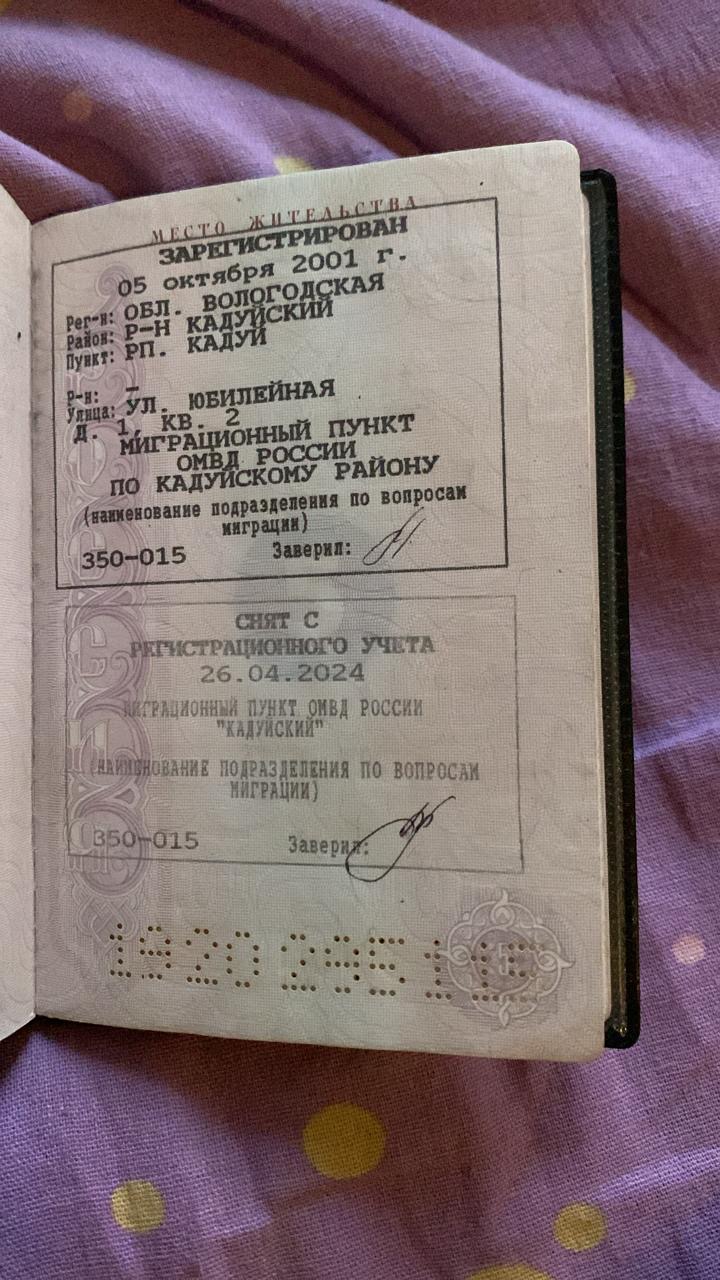 МЕСТО ЖИТЕЛЬСТВА
ЗАРЕГИСТРИРОВАН
05 октября 2001 г.
Рег-н: ОБЛ. ВОЛОГОДСКАЯ
Район: Р-Н КАДУЙСКИЙ
Пункт: РП. КАДУЙ
Р-н: –
Улица: УЛ. ЮБИЛЕЙНАЯ
Д. 1, КВ. 2
МИГРАЦИОННЫЙ ПУНКТ
ОМВД РОССИИ
ПО КАДУЙСКОМУ РАЙОНУ
(наименование подразделения по вопросам
миграции)
350-015 Заверил:
СНЯТ С
РЕГИСТРАЦИОННОГО УЧЕТА
26.04.2024
МИГРАЦИОННЫЙ ПУНКТ ОМВД РОССИИ
"КАДУЙСКИЙ"
(НАИМЕНОВАНИЕ ПОДРАЗДЕЛЕНИЯ ПО ВОПРОСАМ
МИГРАЦИИ)
350-015 Заверил:
1920